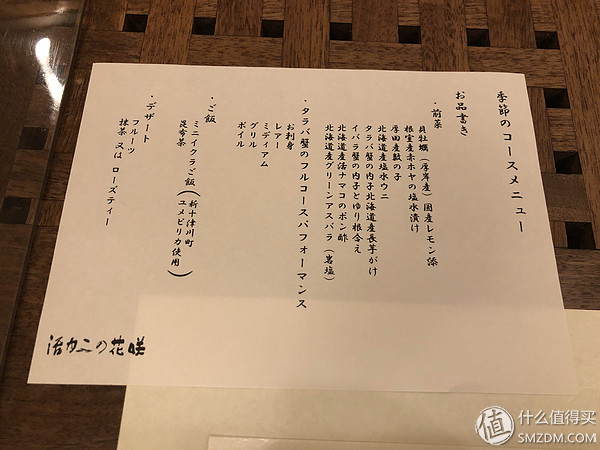 季節のコースメニュー
お品書き
・前菜
貝牡蠣(厚岸産)国産レモン添
根室産赤ホヤの塩水漬け
厚田産数の子
北海道産塩水ウニ
タラバ蟹の内子北海道産長芋がけ
イバラ蟹の内子とゆり根合え
北海道産活ナマコのポン酢
北海道産グリーンアスパラ(岩塩)
・タラバ蟹のフルコースパフォーマンス
お刺身
レアー
ミディアム
グリル
ボイル
・ご飯
ミニイクラご飯(新十津川町
ユメピリカ使用)
昆布茶
・デザート
フルーツ
抹茶 又は ローズティー
活カニの花咲
值 什么值得买
SMZDM.COM